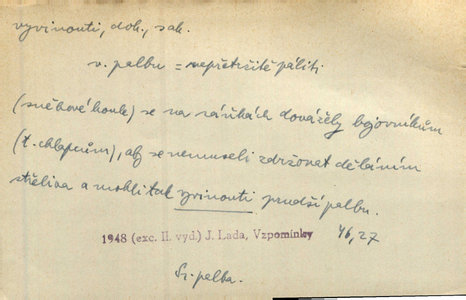 vyvinouti, dok., sak.
v. palbu = nepřetržitě páliti
(sněhové koule) se na sáňkách dovážely bojovníkům
(t. chlapcům), aby se nemuseli zdržovat děláním
střeliva a mohli tak vyvinouti prudší palbu.
1948 (exc. II. vyd.) J. Lada, Vzpomínky 46,27
Sr. palba.